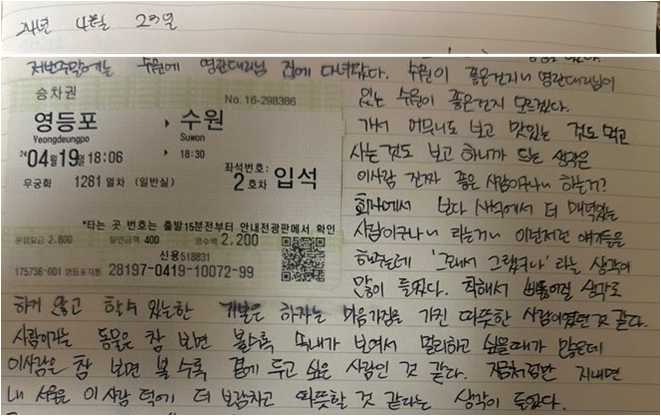 24년 4월 23일
저번주말에는 수원에 영관대리님 집에 다녀왔다. 수원이 좋은건지 영관대리님이
있는 수원이 좋은건지 모르겠다.
가서 어머니도 보고 맛있는 것도 먹고
사는것도 보고 하니까 드는 생각은
이사람 진짜 좋은 사람이구나 하는거?
회사에서 보다 사석에서 더 매력있는
사람이구나 라는거나 이런저런 얘기들을
하는데 '그래서 그랬구나' 라는 생각이
많이 들었다. 척해서 삐뚤어질 생각도
하게 않고 할수 있는한 기본은 하자는 마음가짐을 가진 따뜻한 사람이였던 것 같다.
사람이라는 동물은 참 보면 볼수록 모내가 보여서 멀리하고 싶을때가 많은데
이사람은 참 보면 볼 수록 곁에 두고 싶은 사람인 것 같다. 지금처럼만 지내면
내 서울은 이 사람 덕에 더 보람차고 따뜻할 것 같다는 생각이 들었다.
승차권
No.16-298386
영등포 ▸ 수원
Yeongdeungpo Suwon
'24 04월19일 18:06 ▸ 18:30
무궁화 1281 열차 (일반실)
좌석번호:
2호차 입석
*타는 곳 번호는 출발15분전부터 안내전광판에서 확인
운임요금 2,600 할인금액 400 영수액 2,200
신용518831
175736-001 영등포자동 28197-0419-10072-99